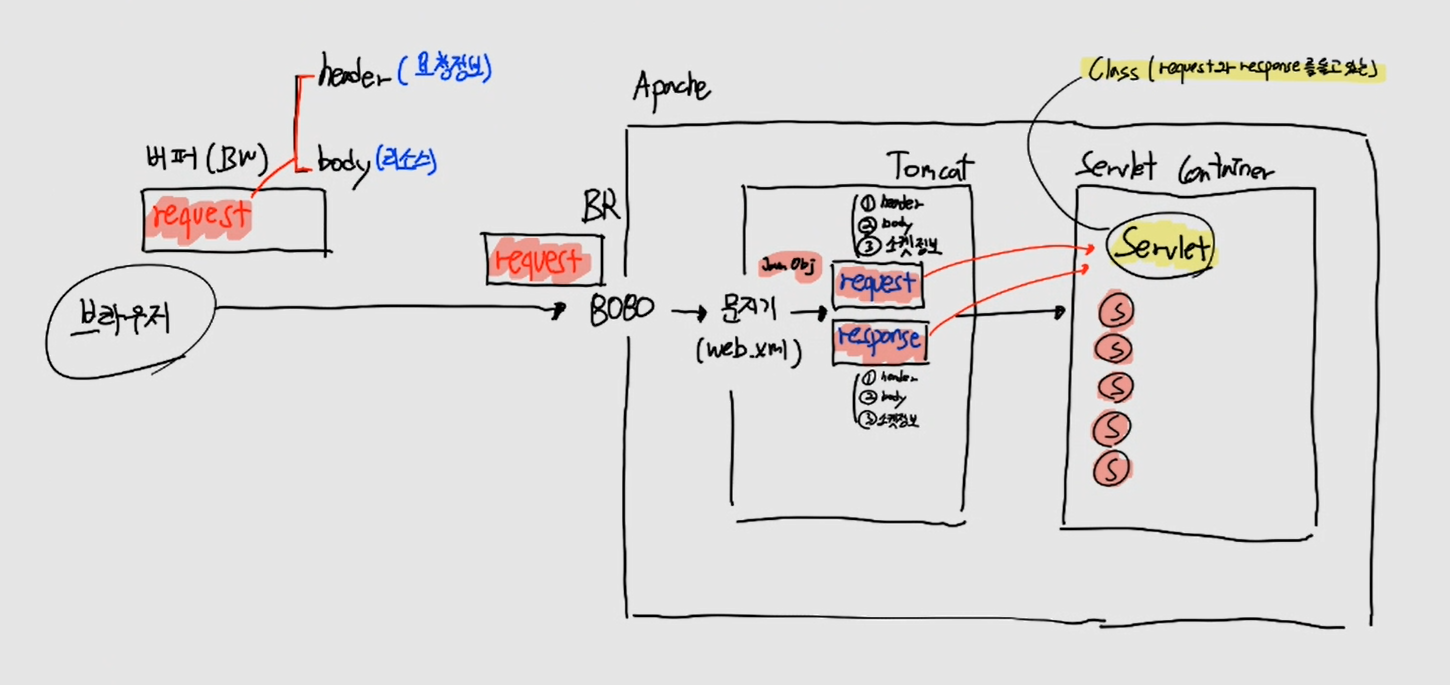 header (요청정보)
버퍼 (BW)
body (리소스)
request
브라우저
BR
request
8080
Apache
문지기
(web.xml)
Tomcat
① header
② body
③ 소켓정보
Java Obj
request
response
① header
② body
③ 소켓정보
Class (request와 response를 들고 있는)
Servlet Container
Servlet
S
S
S
S
S